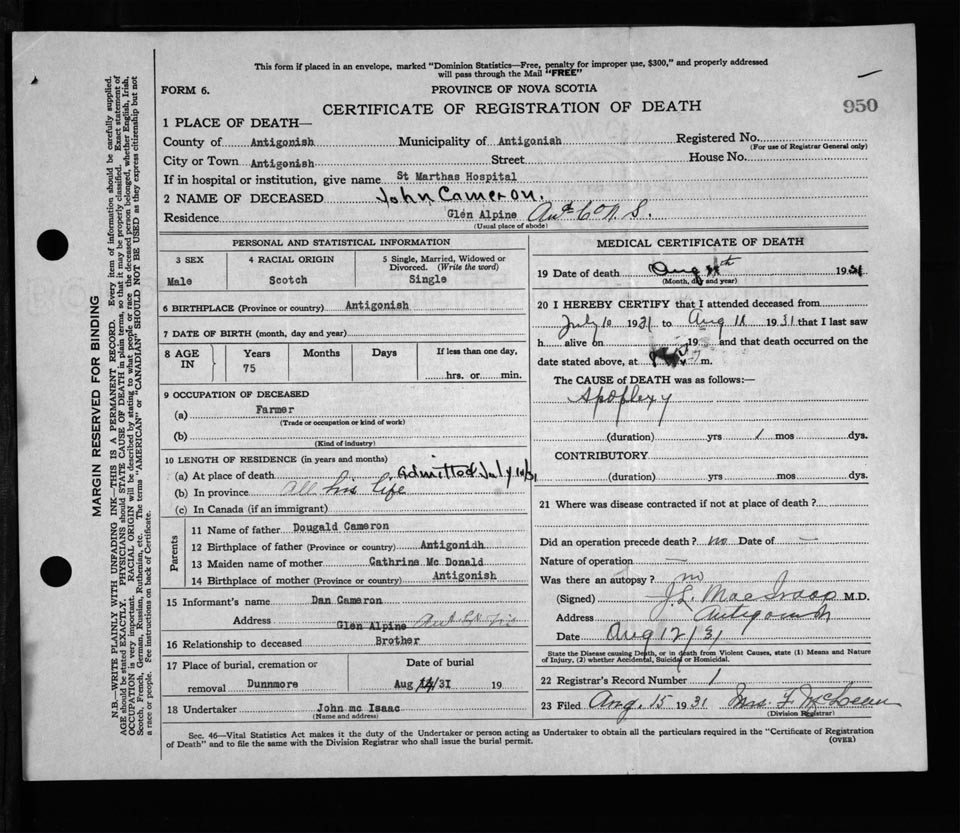 This form if placed in an envelope, marked "Dominion Statistics—Free, penalty for improper use, $300," and properly addressed
will pass through the Mail "FREE"
FORM 6.
PROVINCE OF NOVA SCOTIA
CERTIFICATE OF REGISTRATION OF DEATH
950
1 PLACE OF DEATH—
County of Antigonish Municipality of Antigonish Registered No.
(For use of Registrar General only)
City or Town Antigonish Street House No.
If in hospital or institution, give name St Marthas Hospital
2 NAME OF DECEASED John Cameron.
Residence Glen Alpine Ant Co N. S.
(Usual place of abode)
PERSONAL AND STATISTICAL INFORMATION
3 SEX
Male
4 RACIAL ORIGIN
Scotch
5 Single, Married, Widowed or
Divorced. (Write the word)
Single
6 BIRTHPLACE (Province or country) Antigonish
7 DATE OF BIRTH (month, day and year)
8 AGE
IN
Years
75
Months
Days
If less than one day,
hrs. or min.
9 OCCUPATION OF DECEASED
(a) Farmer
(Trade or occupation or kind of work)
(b)
(Kind of industry)
10 LENGTH OF RESIDENCE (in years and months)
(a) At place of death Admitted July 10/31
(b) In province all his life
(c) In Canada (if an immigrant)
Parents
11 Name of father Dougald Cameron
12 Birthplace of father (Province or country) Antigonidh
13 Maiden name of mother Cathrine Mc Donald
14 Birthplace of mother (Province or country) Antigonish
15 Informant's name Dan Cameron
Address Glen Alpine
16 Relationship to deceased Brother
17 Place of burial, cremation or
removal Dunnmore
Date of burial
Aug /31 19
18 Undertaker John mc Isaac
(Name and address)
MEDICAL CERTIFICATE OF DEATH
19 Date of death Aug th 1931
(Month, day and year)
20 I HEREBY CERTIFY that I attended deceased from
July 10 1931 to Aug 11 1931 that I last saw
h alive on 193 and that death occurred on the
date stated above, at m.
The CAUSE OF DEATH was as follows:—
Apoplexy
(duration) yrs 1 mos dys.
CONTRIBUTORY
(duration) yrs mos dys.
21 Where was disease contracted if not at place of death?
Did an operation precede death? no Date of —
Nature of operation —
Was there an autopsy? no
(Signed) J. L. MacIsaac M.D.
Address Antigonish
Date Aug 12/31
State the Disease causing Death, or in death from Violent Causes, state (1) Means and Nature
of Injury, (2) whether Accidental, Suicidal or Homicidal.
22 Registrar's Record Number 1
23 Filed Aug. 15 1931 Mrs. F. McLean
(Division Registrar)
Sec. 46—Vital Statistics Act makes it the duty of the Undertaker or person acting as Undertaker to obtain all the particulars required in the "Certificate of Registration
of Death" and to file the same with the Division Registrar who shall issue the burial permit.
(OVER)
MARGIN RESERVED FOR BINDING
N.B.—WRITE PLAINLY WITH UNFADING INK—THIS IS A PERMANENT RECORD. Every item of information should be carefully supplied.
AGE should be stated EXACTLY. PHYSICIANS should STATE CAUSE OF DEATH in plain terms, so that it may be properly classified. Exact statement of
OCCUPATION is very important. RACIAL ORIGIN will be described by stating to what people or race the deceased person belonged, whether English, Irish,
Scotch, French, German, Russian, Ruthenian, etc. The terms "AMERICAN" or "CANADIAN" SHOULD NOT BE USED as they express citizenship but not
a race or people. See instructions on back of Certificate.